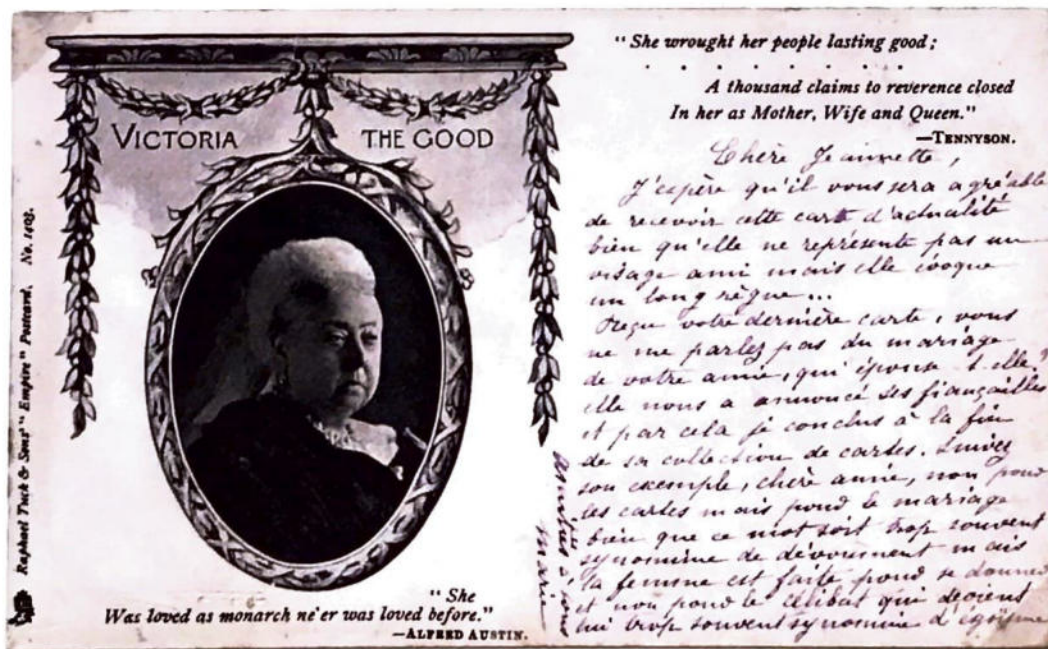 VICTORIA THE GOOD
Raphael Tuck & Sons' "Empire" Postcard, No. 1403.
"She
Was loved as monarch ne'er was loved before."
—ALFRED AUSTIN.
"She wrought her people lasting good;
. . . . . . . . .
A thousand claims to reverence closed
In her as Mother, Wife and Queen."
—TENNYSON.
Chère Jeannette,
J'espère qu'il vous sera agréable
de recevoir cette carte d'actualité
bien qu'elle ne représente pas un
visage ami mais elle évoque
un long règne...
Reçu votre dernière carte, vous
ne me parlez pas du mariage
de votre amie, qui épouse t-elle?
elle nous a annoncé ses fiançailles
et par cela je conclus à la fin
de sa collection de cartes. Suivez
son exemple, chère amie, non pour
les cartes mais pour le mariage
bien que ce mot soit trop souvent
synonimme de dévouement mais
la femme est faite pour se donner
et non pour le célibat qui devient
lui trop souvent synonimme d'égoïsme
Amitiés à vous
Marie